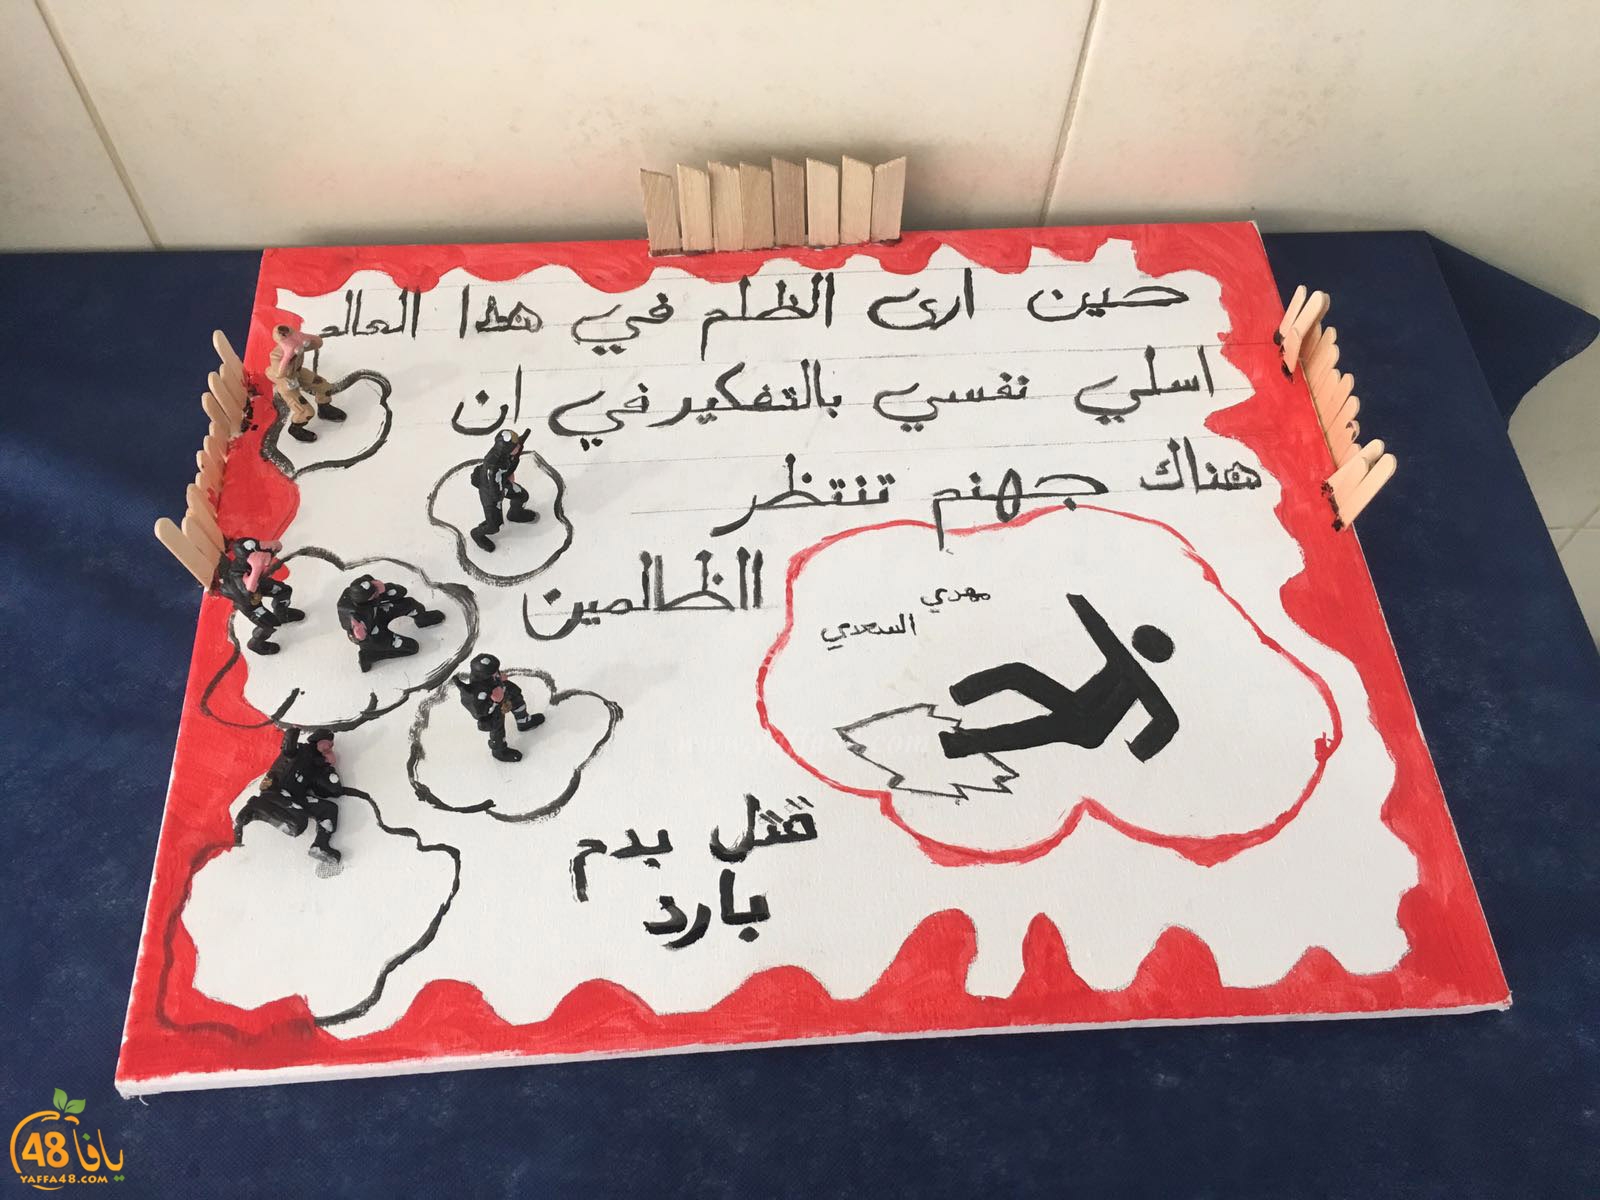 حين ارى الظلم في هذا العالم
اسلي نفسي بالتفكير في ان
هناك جهنم تنتظر
الظالمين
مهدي
السعدي
قتل بدم
بارد
www.yaffa48.com
48 يافا
YAFFA48.COM